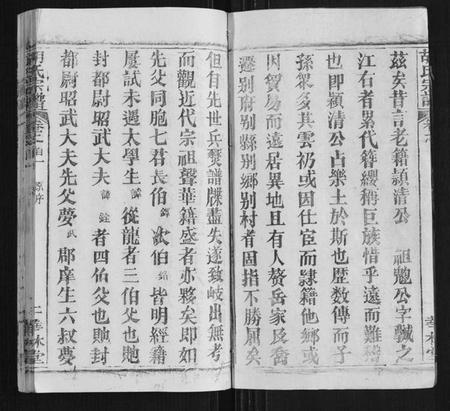 茲矣昔言老籍潁清公 祖勉公字驖之
江右者累代簪纓稱巨族惜乎遠而難稽
也即潁清公占樂土於斯也歷數傳而子
孫眾多其雲礽或因仕宦而隸籍他鄉或
因貿易而遠居異地且有人贅岳家及喬
遷別府別縣別鄉別村者固指不勝屈矣
胡氏宗譜
華林堂
但自先世兵燹譜牒盡失遂致岐出無考
而觀近代宗祖聲華籍盛者亦夥矣即如
先父同胞七君長伯 歃伯 皆明經籍
屢試未遇太學生 從龍者三伯父也貤
封都尉昭武大夫 者四伯父也貤封
都尉昭武大夫先父夢武 郡庠生六叔夢
胡氏宗譜
原序
二 華林堂